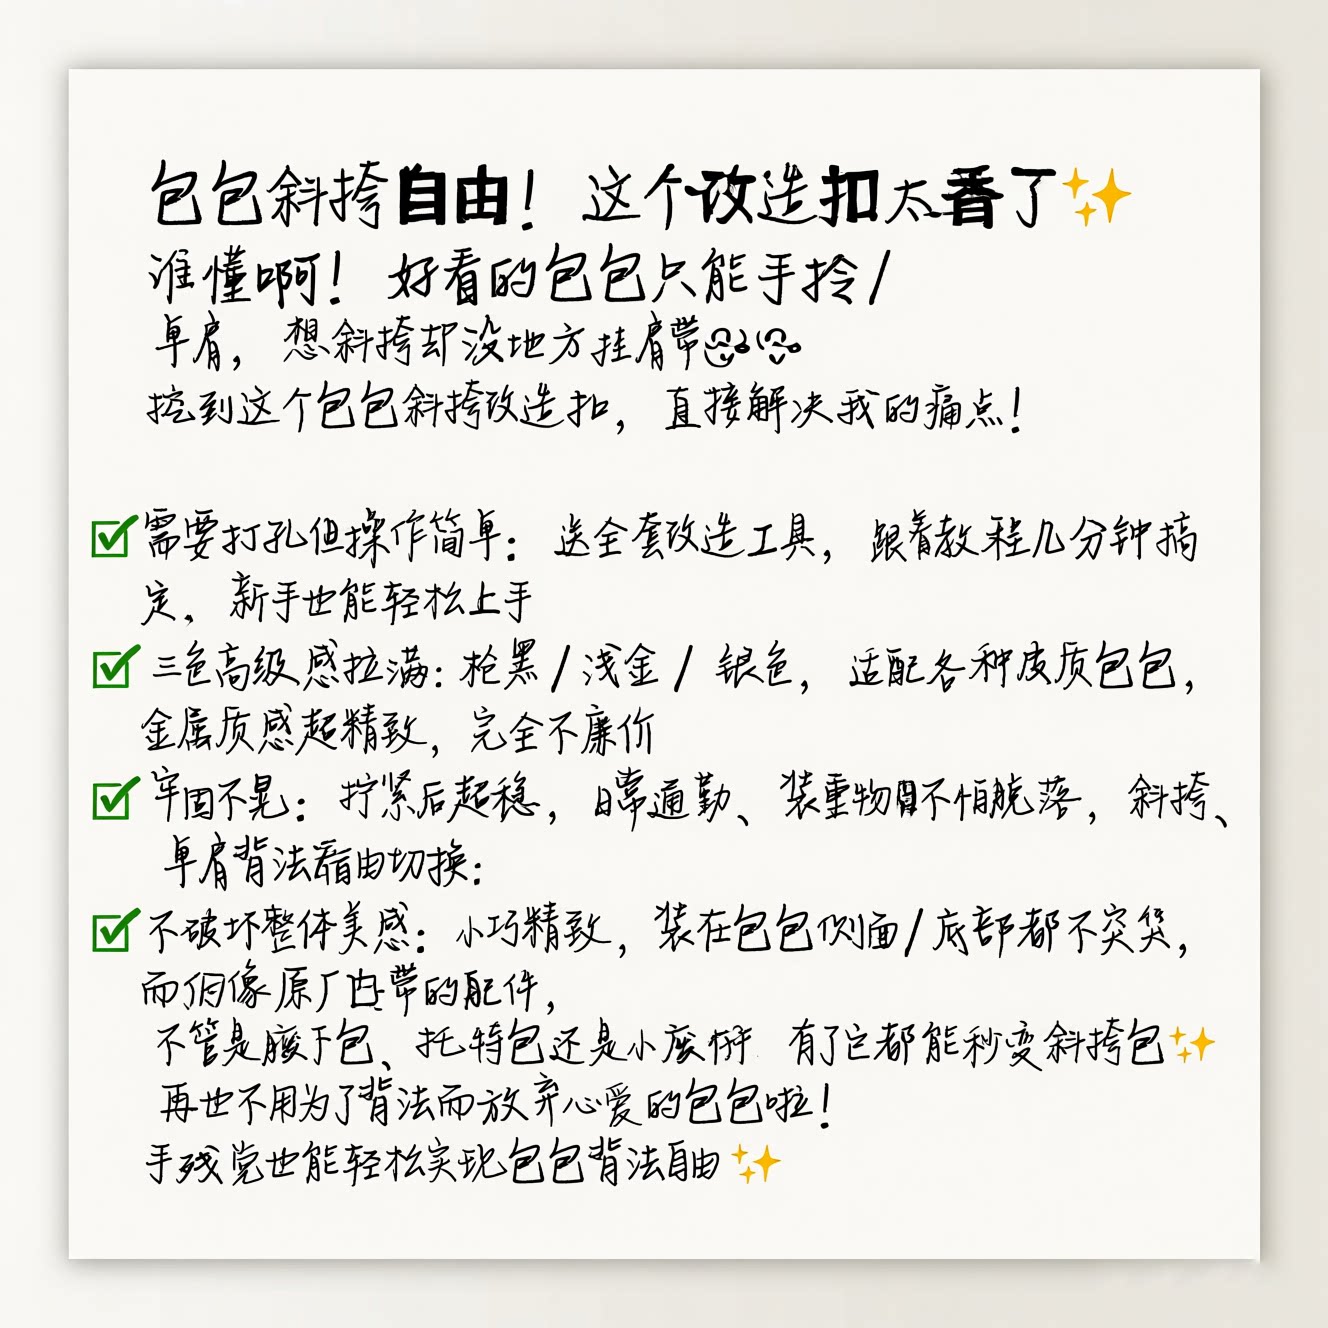 包包斜挎自由！这个改造扣太香了✨
谁懂啊！好看的包包只能手拎/
单肩，想斜挎却没地方挂肩带
挖到这个包包斜挎改造扣，直接解决我的痛点！
✅需要打孔但操作简单：送全套改造工具，跟着教程几分钟搞
定，新手也能轻松上手
✅三色高级感拉满：枪黑/浅金/银色，适配各种皮质包包，
金属质感超精致，完全不廉价
✅牢固不晃：拧紧后超稳，日常通勤、装重物都不怕脱落，斜挎、
单肩背法自由切换：
✅不破坏整体美感：小巧精致，装在包包侧面/底部都不突兀，
而像原厂自带的配件，
不管是腋下包、托特包还是小废柴 有了它都能秒变斜挎包✨
再也不用为了背法而放弃心爱的包包啦！
手残党也能轻松实现包包背法自由✨